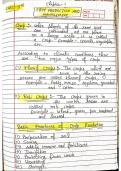 CROP PRODUCTION AND
MANAGEMENT
Crop :- when plants of the same kind
are cultivated at one place
on a large scale, it is called
a crop. Example - cereals, vegetables,
etc.
According to climatic conditions there
are two types of crops.
1. Kharif Crops :- The crops which are
sown in the rainy
season are called kharif crops.
Example - Paddy, maize, soyabean, groundnut
and cotton.
2. Rabi Crops :- The crops grown in
the winter season are
called rabi crops.
Example - wheat, gram, pea, mustard
and linseed.
Basic Practices of Crop Production
(i) Preparation of soil
(ii) Sowing
(iii) Adding manure and fertilisers
(iv) Irrigation
(v) Protecting from weeds
(vi) Harvesting
(vii) Storage